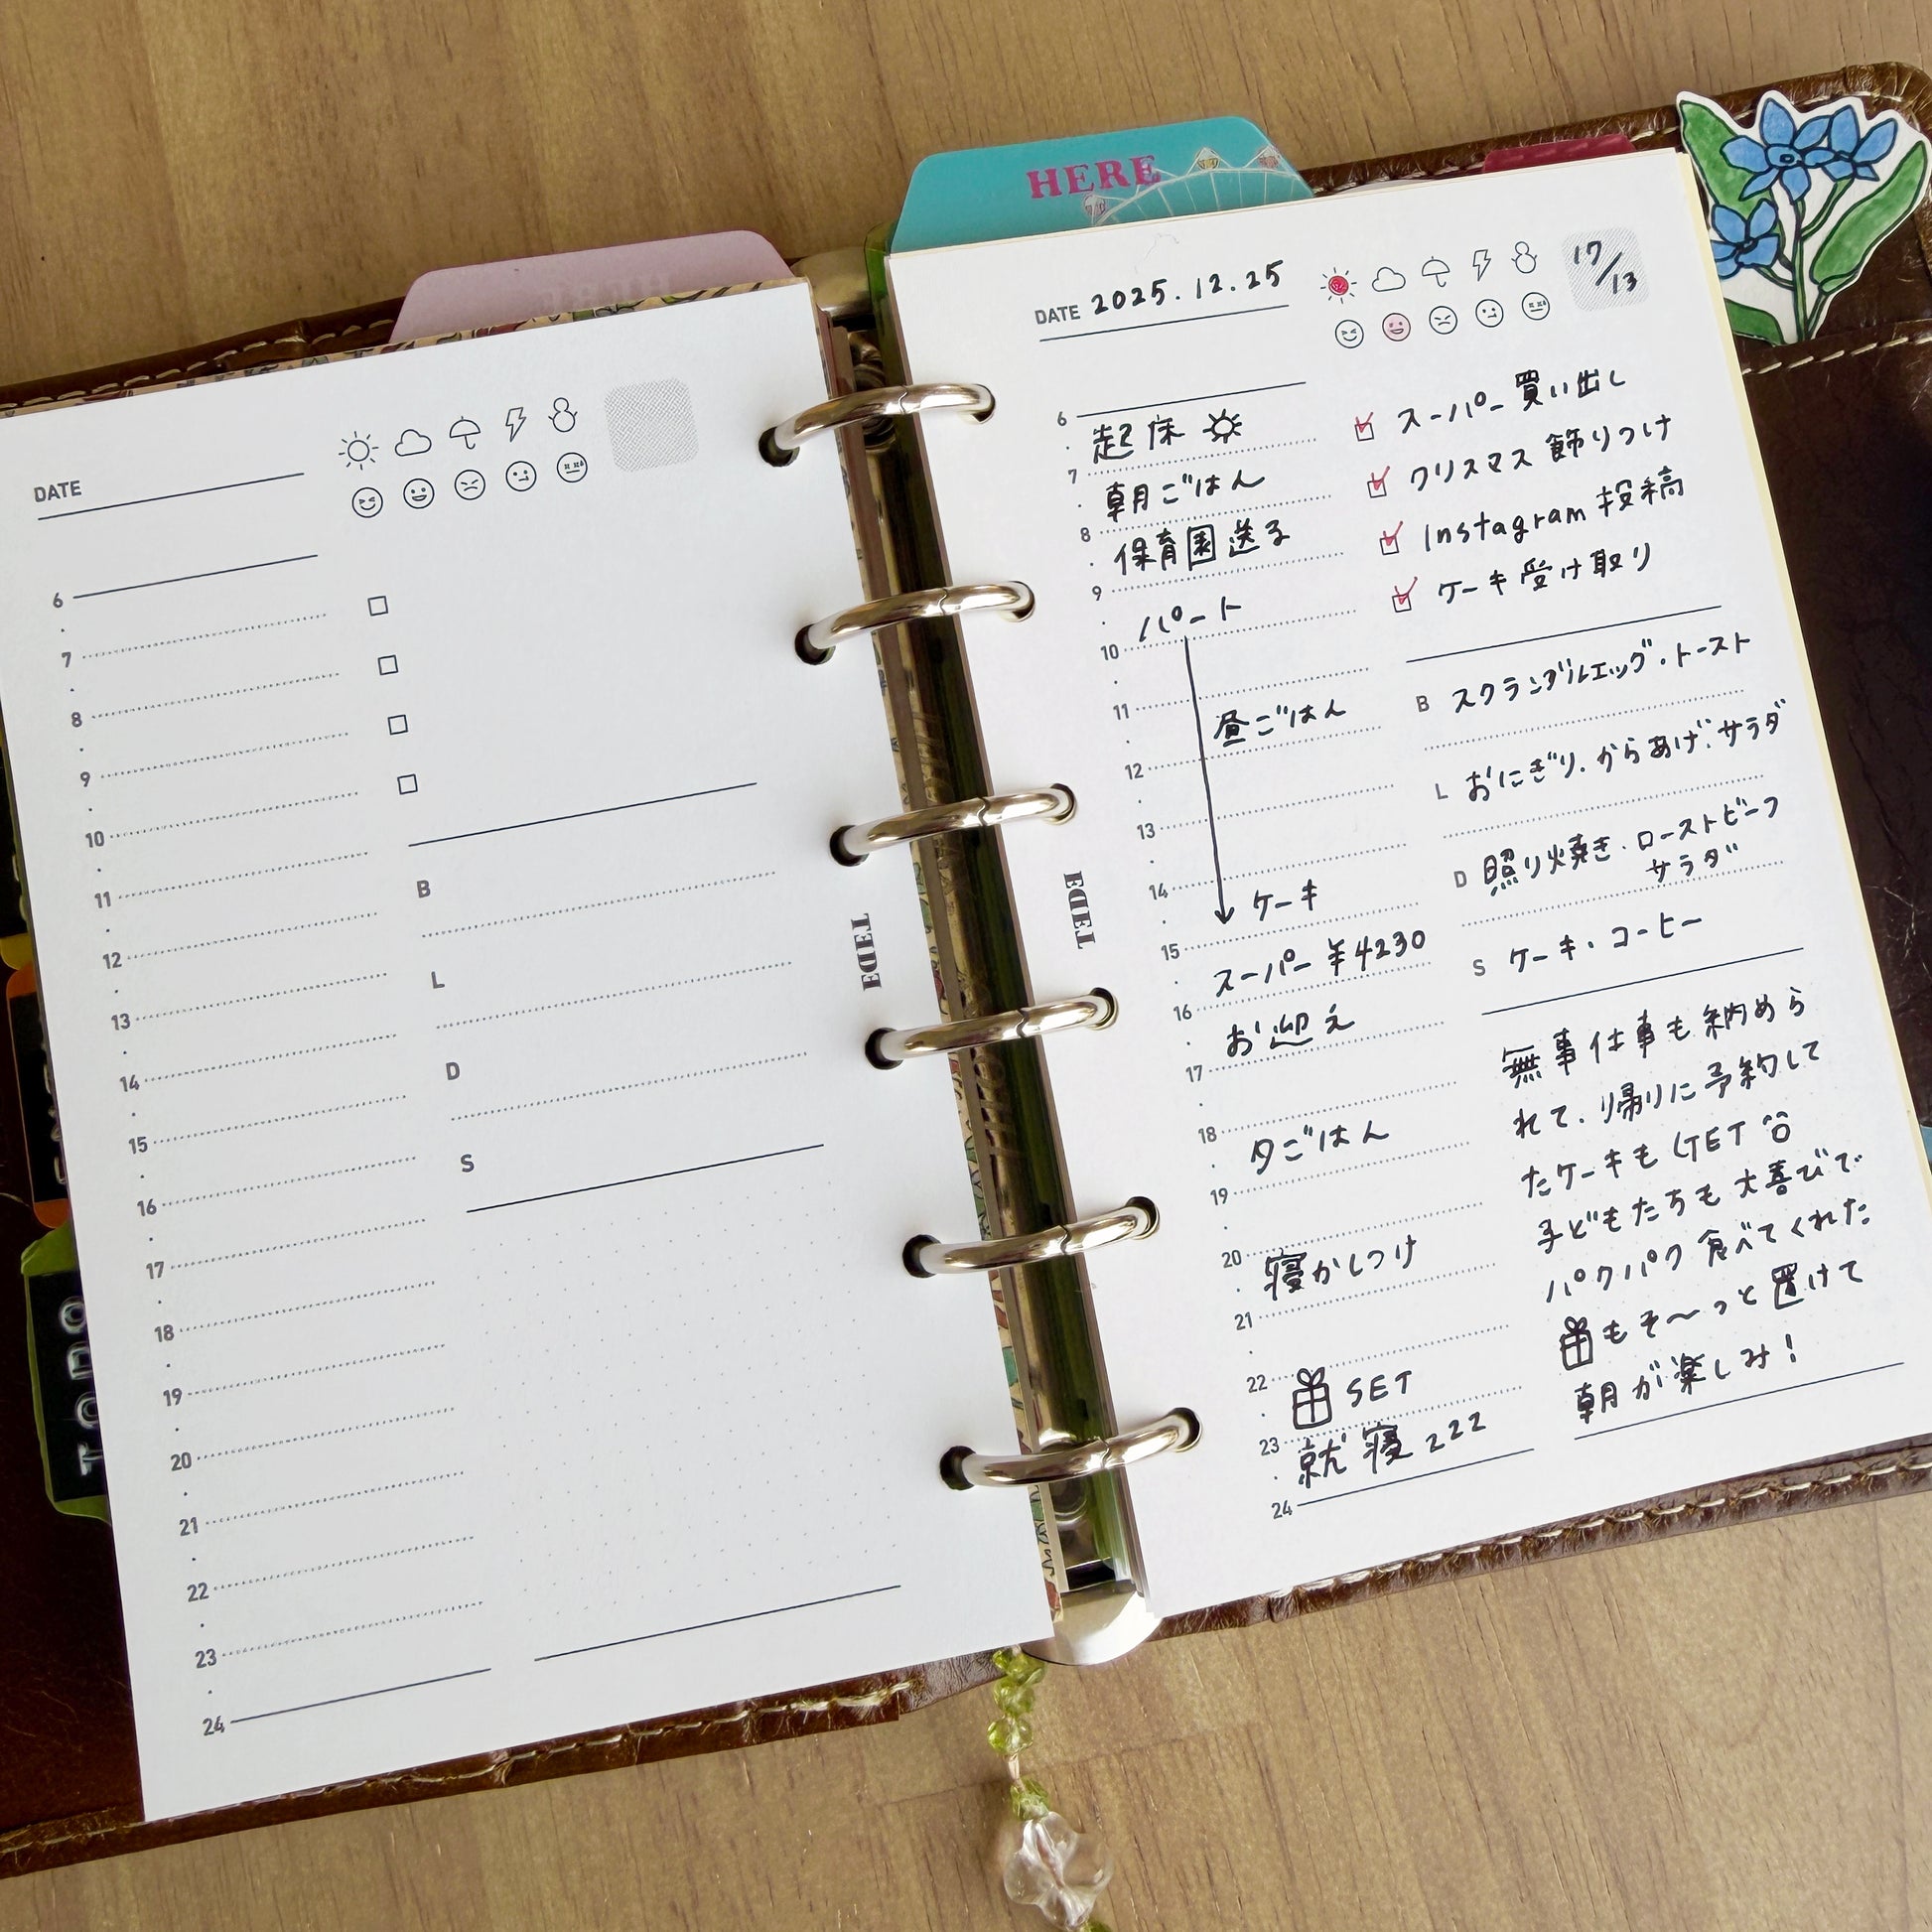 DATE
6
7
8
9
10
11
12
13
14
15
16
17
18
19
20
21
22
23
24
B
L
D
S
EDiET
TODO
HERE
DATE 2025.12.25
17/13
6
起床
7
朝ごはん
8
保育園送る
9
パート
10
11
昼ごはん
12
13
14
ケーキ
15
スーパー ¥4230
16
お迎え
17
18
夕ごはん
19
20
寝かしつけ
21
22
SET
23
就寝 zzz
24
スーパー買い出し
クリスマス飾りつけ
Instagram投稿
ケーキ受け取り
B スクランブルエッグ・トースト
L おにぎり・からあげ・サラダ
D 照り焼き・ローストビーフ
サラダ
S ケーキ・コーヒー
無事仕事も納めら
れて、帰りに予約して
たケーキもGET
子どもたちも大喜びで
パクパク食べてくれた
もそ〜っと置けて
朝が楽しみ!